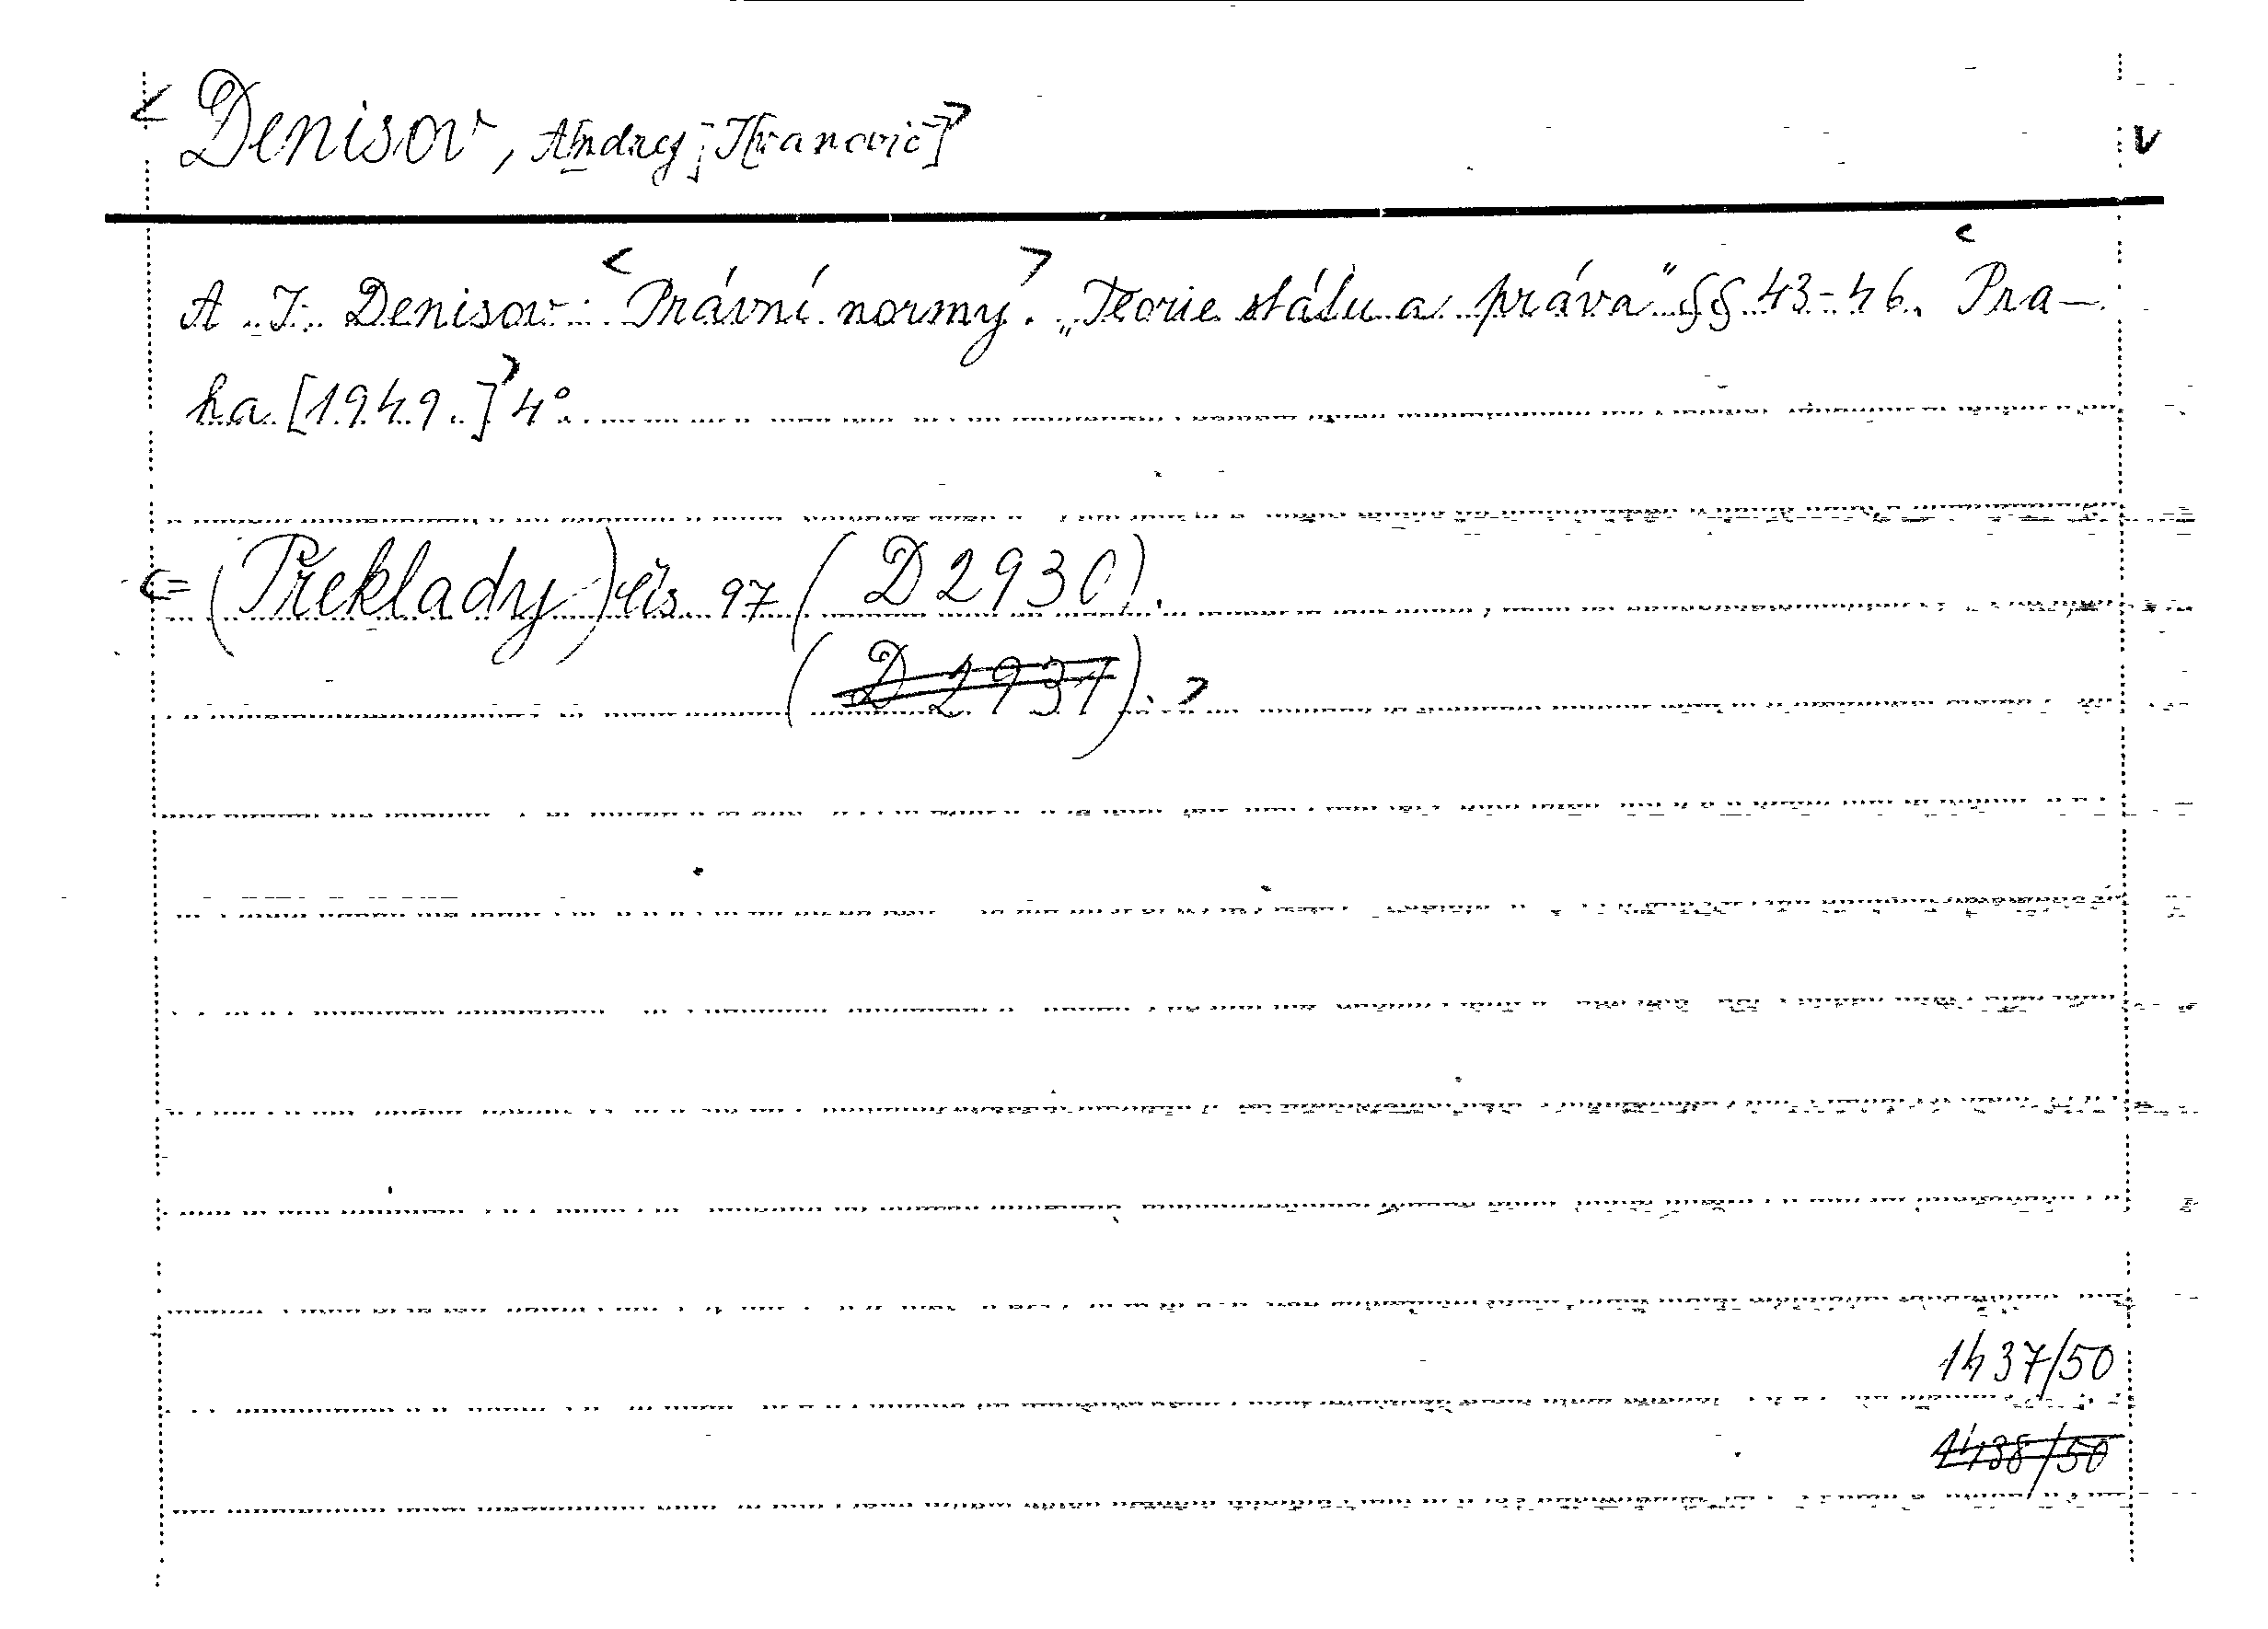 < Denisov, A[ndrej] I[vanovič] >
v
A. I. Denisov: < Právní normy. > „Teorie státu a práva" §§ 43-46. < Pra-
ha [1949.] > 4°.
<= (Překlady) čís. 97 ( D 2930).
( D 2931). >
1437/50
1438/50